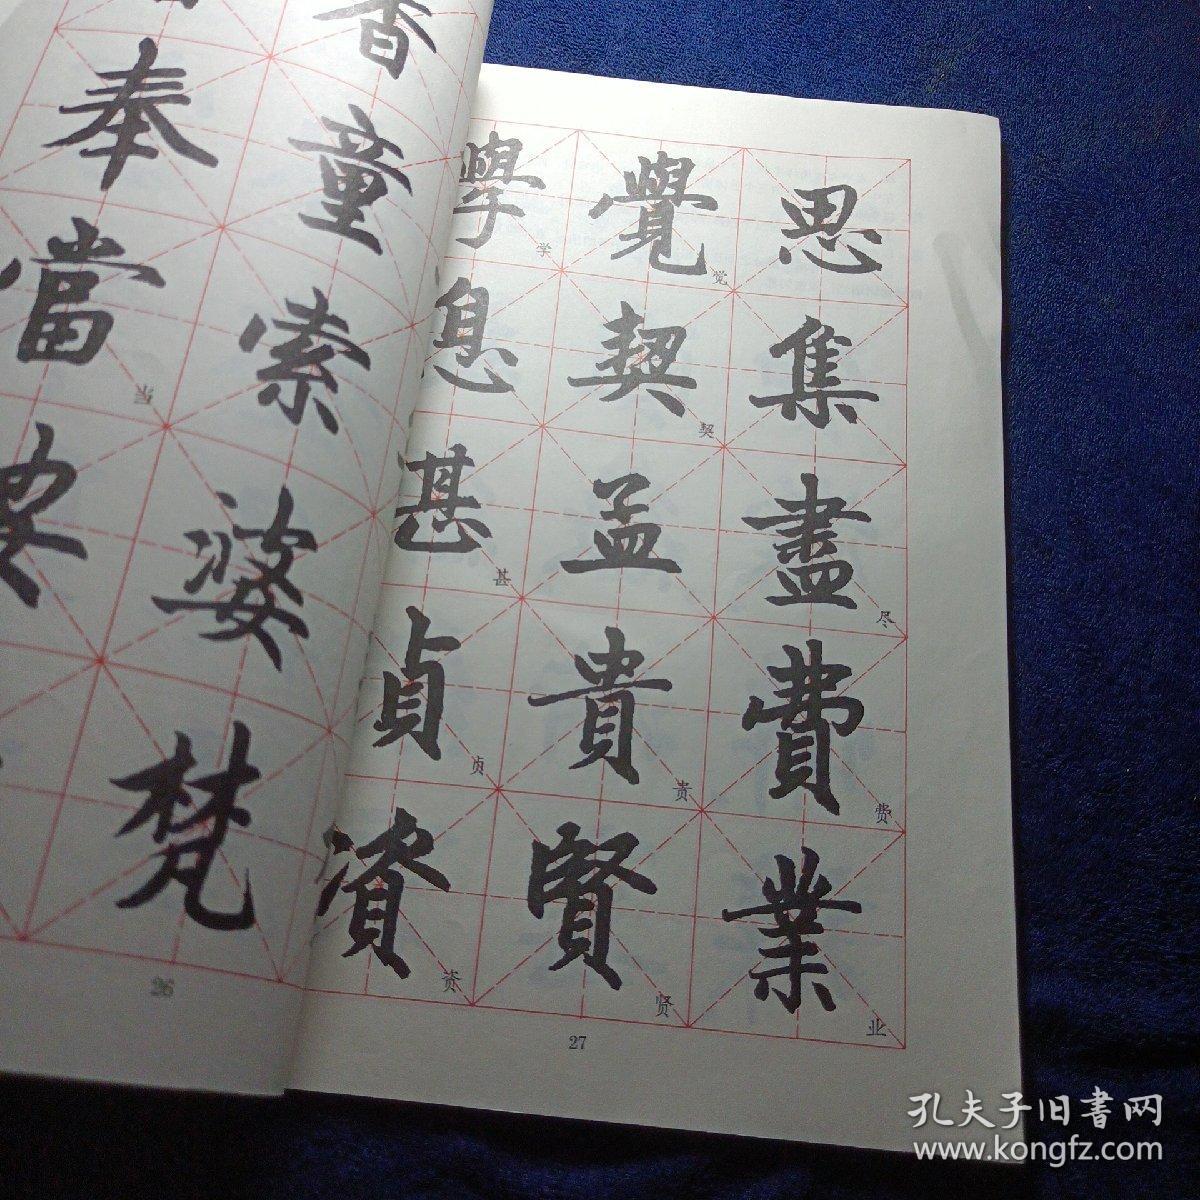 香童索婆梵
奉當当
26
思集盡尽費费業业
覺觉契契孟貴贵賢贤
學学息甚甚貞贞資资
27
孔夫子旧書网
www.kongfz.com